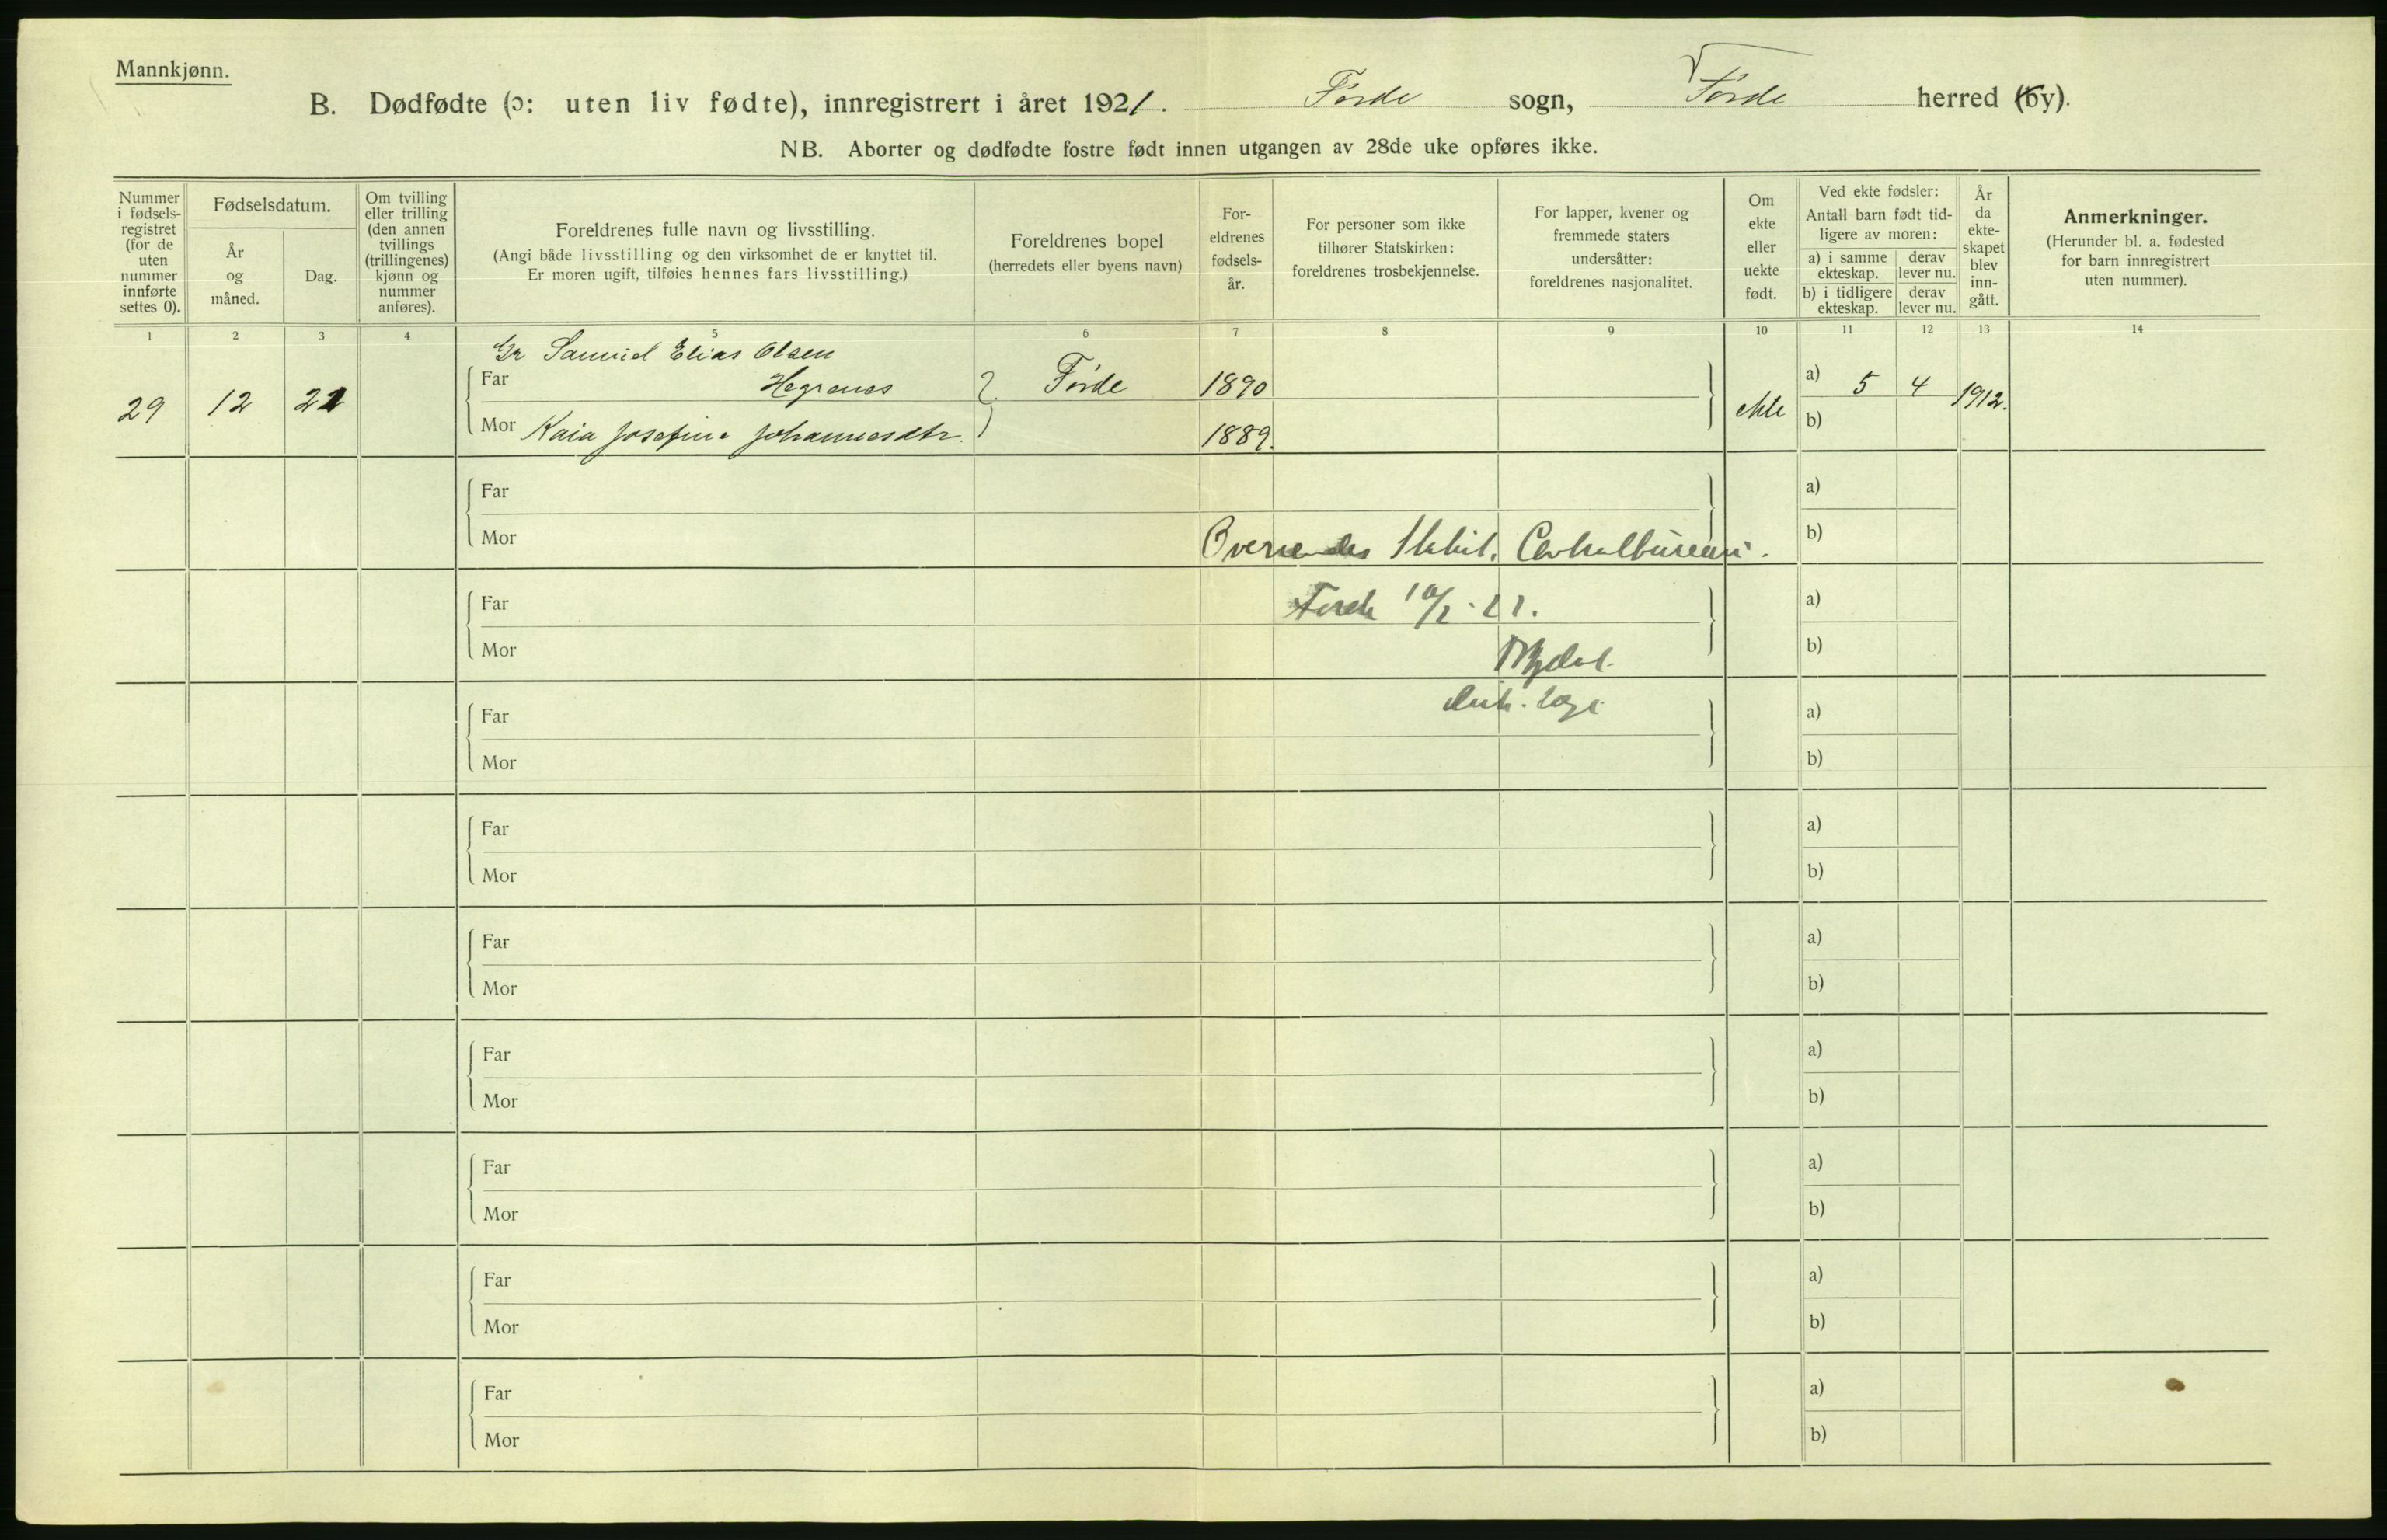 Mannkjønn.
B. Dødfødte (ɔ: uten liv fødte), innregistrert i året 1921. Førde sogn, Førde herred (by).
NB. Aborter og dødfødte fostre født innen utgangen av 28de uke opføres ikke.
Nummer i fødsels-registret (for de uten nummer innførte settes 0).
Fødselsdatum.
År og måned.
Dag.
Om tvilling eller trilling (den annen tvillings (trillingenes) kjønn og nummer anføres).
Foreldrenes fulle navn og livsstilling.
(Angi både livsstilling og den virksomhet de er knyttet til.
Er moren ugift, tilføies hennes fars livsstilling.)
Foreldrenes bopel
(herredets eller byens navn)
For-eldrenes fødsels-år.
For personer som ikke tilhører Statskirken: foreldrenes trosbekjennelse.
For lapper, kvener og fremmede staters undersåtter: foreldrenes nasjonalitet.
Om ekte eller uekte født.
Ved ekte fødsler:
Antall barn født tid-ligere av moren:
a) i samme ekteskap.
derav lever nu.
b) i tidligere ekteskap.
derav lever nu.
År da ekte-skapet blev inn-gått.
Anmerkninger.
(Herunder bl. a. fødested for barn innregistrert uten nummer).
1 2 3 4 5 6 7 8 9 10 11 12 13 14
Gr Samuel Elias Olsen
29 12 21 Far Hegrenes Førde 1890 ekte a) 5 4 1912.
Mor Kaia Josefine Johannesdtr. 1889. b)
Far a)
Mor b)
Oversendes Statist. Centralbureau.
Far a)
Førde
Mor b)
Far a)
Mor b)
Far a)
Mor b)
Far a)
Mor b)
Far a)
Mor b)
Far a)
Mor b)
Far a)
Mor b)
Far a)
Mor b)